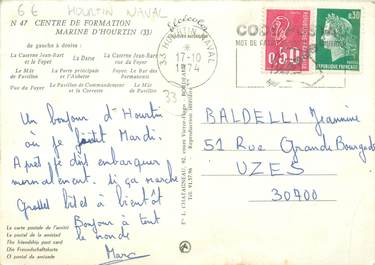 6 € HOURTIN NAVAL
N 47 CENTRE DE FORMATION
MARINE D'HOURTIN (33)
de gauche à droite :
La Caserne Jean-Bart
et le Foyer
La Darse
La Caserne Jean-Bart
vue du Foyer
Le Mât
de Pavillon
La Porte principale
et l'Aubette
Foyer: Le Bar des
Permanents
Vue du Foyer
Le Pavillon de Commandement
et la Caserne
Le Mât
de Pavillon
33 HOURTIN NAVAL
17-10
1974
33
CODE POSTAL
MOT DE PASSE
0,50
0,30
REPUBLIQUE FRANÇAISE
Un bonjour d'Hourtin
où je Mardi.
Après je dois embarquer
normalement. si ça marche
Grosses bises à bientôt
Bonjour à tout
le monde
Marc
BALDELLI Jeannine
51 Rue Grande Bourgade
UZES
30700
La carte postale de l'amitié
La postal de la amistad
The friendship post card
Die Freundschaftskarte
O postal da amizade
CHATAGNEAU, 82, cours Victor-Hugo - BORDEAUX
Reproduction interdite